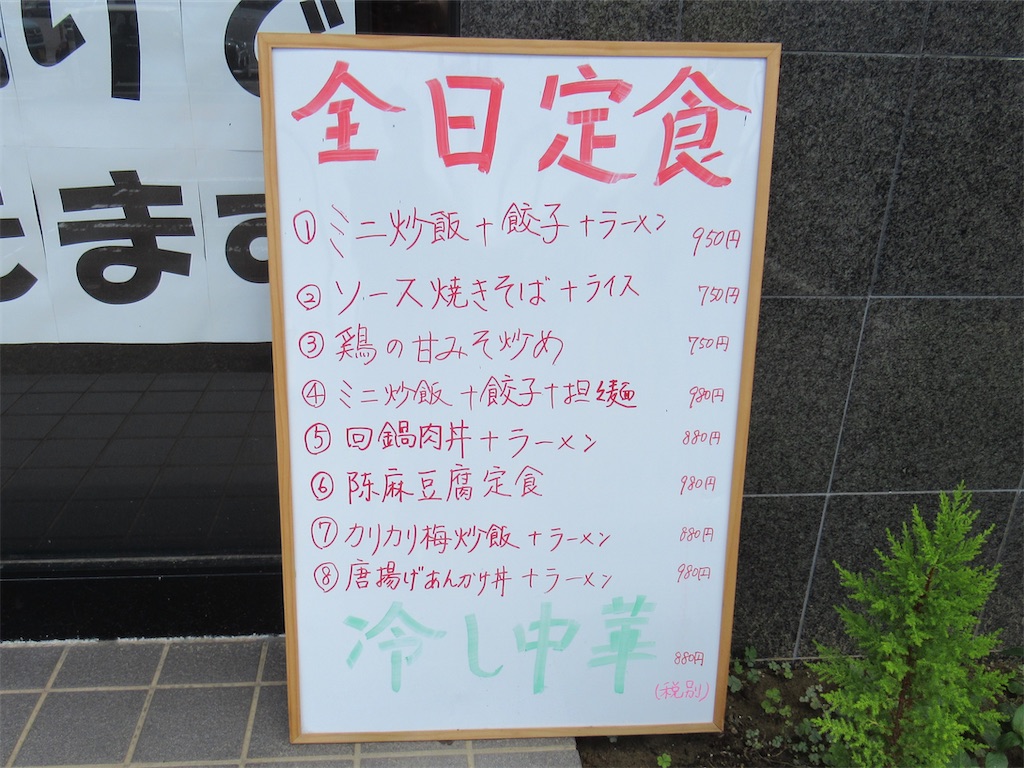 全日定食
① ミニ炒飯+餃子+ラーメン 950円
② ソース焼きそば+ライス 750円
③ 鶏の甘みそ炒め 750円
④ ミニ炒飯+餃子+担々麺 980円
⑤ 回鍋肉丼+ラーメン 880円
⑥ 陈麻豆腐定食 980円
⑦ カリカリ梅炒飯+ラーメン 880円
⑧ 唐揚げあんかけ丼+ラーメン 980円
冷し中華 880円
(税別)
けで
ます